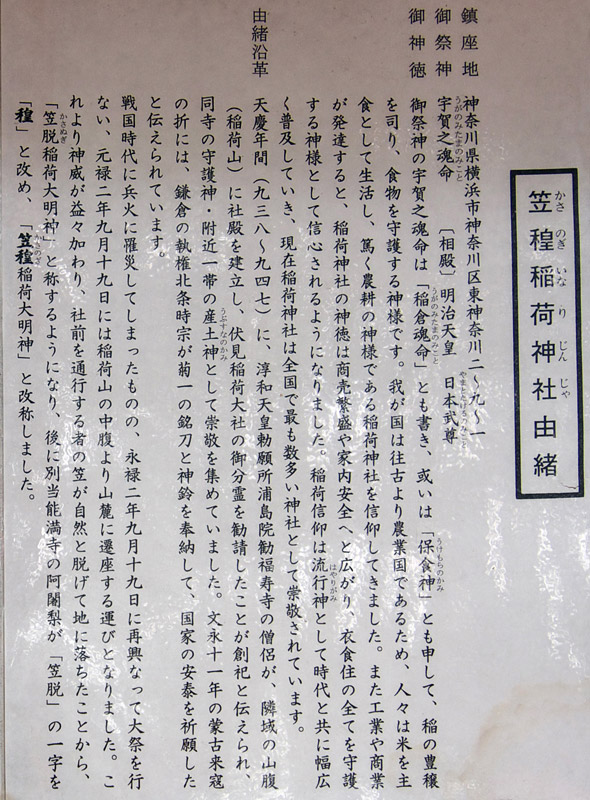 笠䅣稲荷神社由緒
かさのぎいなりじんじゃ
鎮座地　神奈川県横浜市神奈川区東神奈川二〜九〜一
御祭神　宇賀之魂命　〔相殿〕明治天皇　日本武尊
うがのみたまのみこと　やまとたけるのみこと
御神徳　御祭神の宇賀之魂命は「稲倉魂命」とも書き、或いは「保食神」とも申して、稲の豊穣
うがのみたまのみこと　うけもちのかみ
を司り、食物を守護する神様です。我が国は往古より農業国であるため、人々は米を主
食として生活し、篤く農耕の神様である稲荷神社を信仰してきました。また工業や商業
が発達すると、稲荷神社の神徳は商売繁盛や家内安全へと広がり、衣食住の全てを守護
する神様として信心されるようになりました。稲荷信仰は流行神として時代と共に幅広
はやりがみ
く普及していき、現在稲荷神社は全国で最も数多い神社として崇敬されています。
由緒沿革　天慶年間（九三八〜九四七）に、淳和天皇勅願所浦島院観福寿寺の僧侶が、隣域の山腹
（稲荷山）に社殿を建立し、伏見稲荷大社の御分霊を勧請したことが創祀と伝えられ、
同寺の守護神・附近一帯の産土神として崇敬を集めていました。文永十一年の蒙古来寇
うぶすなのかみ
の折には、鎌倉の執権北条時宗が菊一の銘刀と神鈴を奉納して、国家の安泰を祈願した
と伝えられています。
戦国時代に兵火に罹災してしまったものの、永禄二年九月十九日に再興なって大祭を行
ない、元禄二年九月十九日には稲荷山の中腹より山麓に遷座する運びとなりました。こ
れより神威が益々加わり、社前を通行する者の笠が自然と脱げて地に落ちたことから、
「笠脱稲荷大明神」と称するようになり、後に別当能満寺の阿闍梨が「笠脱」の一字を
かさぬぎ
「䅣」と改め、「笠䅣稲荷大明神」と改称しました。
かさのぎ